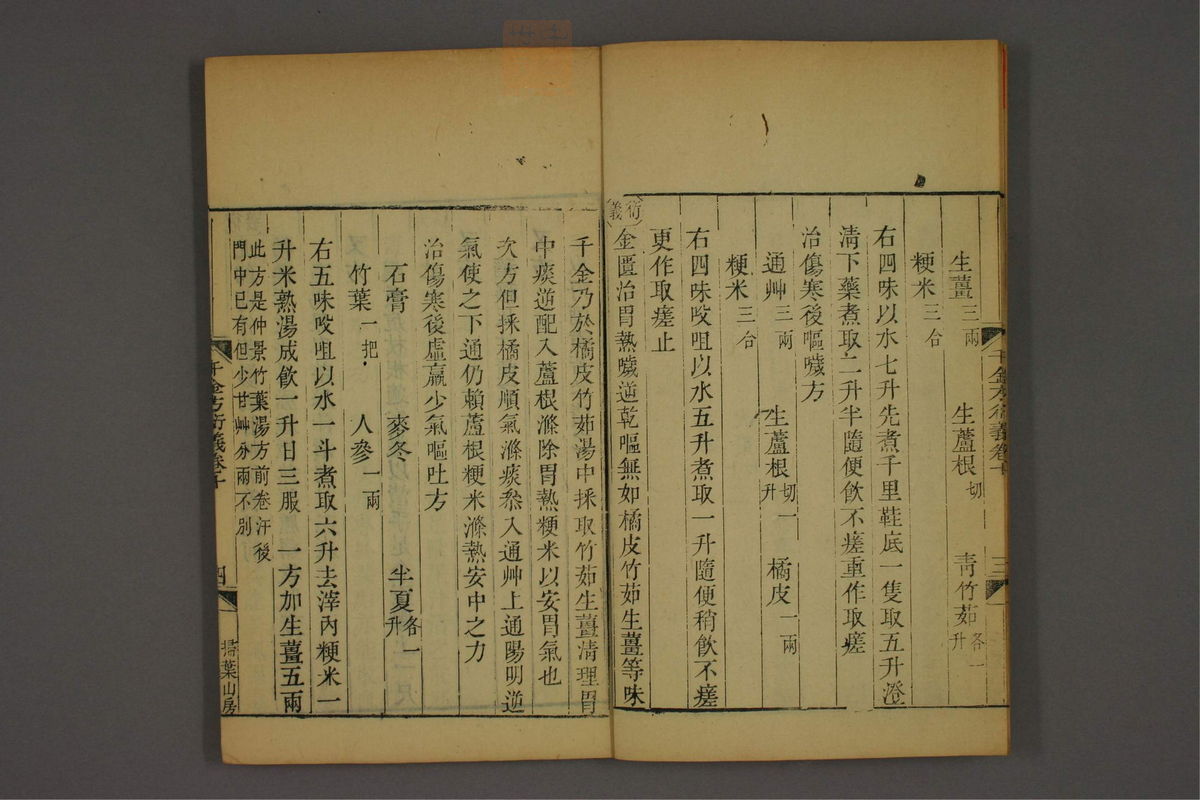 生薑三兩　生蘆根切　青竹茹各一升
粳米三合
右四味以水七升先煮千里鞋底一隻取五升澄
淸下藥煮取二升半隨便飮不瘥重作取瘥
治傷寒後嘔噦方
通艸三兩　生蘆根切一升　橘皮一兩
粳米三合
右四味㕮咀以水五升煮取一升隨便稍飮不瘥
更作取瘥止
衍義
金匱治胃熱噦逆乾嘔無如橘皮竹茹生薑等味
千金方衍義卷十　三
千金乃於橘皮竹茹湯中採取竹茹生薑淸理胃
中痰逆配入蘆根滌除胃熱粳米以安胃氣也
次方但採橘皮順氣滌痰叅入通艸上通陽明逆
氣使之下通仍賴蘆根粳米滌熱安中之力
治傷寒後虛羸少氣嘔吐方
石膏　麥冬　半夏各一升
竹葉一把　人參一兩
右五味㕮咀以水一斗煮取六升去滓內粳米一
升米熟湯成飮一升日三服　一方加生薑五兩
此方是仲景竹葉湯方前卷汗後
門中已有但少甘艸分兩不別
千金方衍義卷十　四　掃葉山房